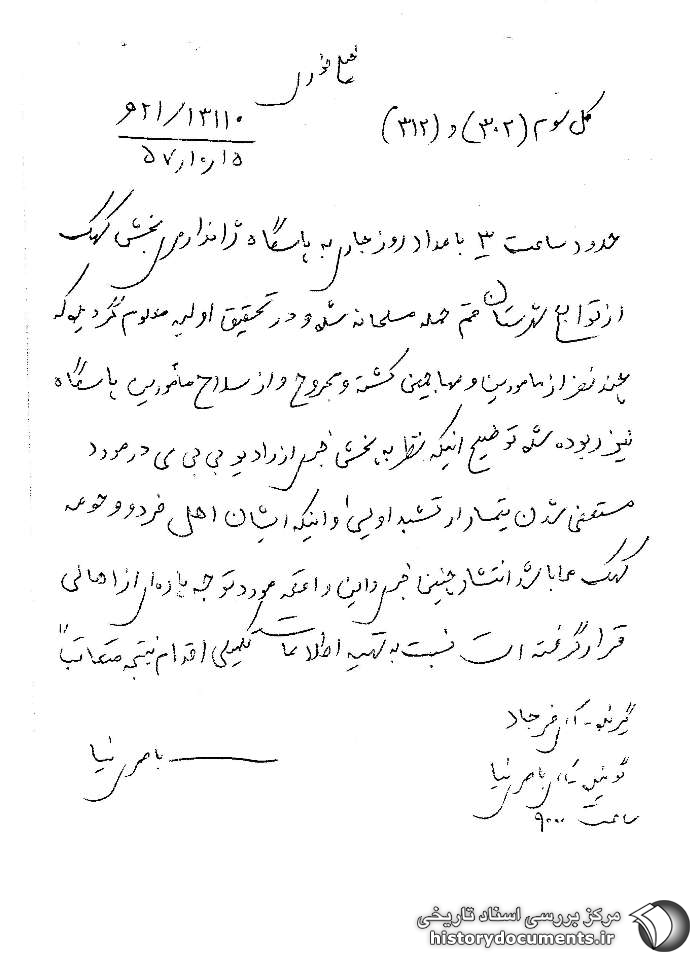 خیلی فوری
کل سوم (۳۰۲) و (۳۱۲)
۱۳۱۱۰/۲۱ه
۵۷/۱۰/۵
حدود ساعت ۳ بامداد روز جاری به پاسگاه ژاندارمری بخش کهک
از توابع شهرستان قم حمله مسلحانه شده و در تحقیق اولیه معلوم گردیده که
چند نفر از مامورین و مهاجمین کشته و مجروح و از سلاح مأمورین پاسگاه
نیز ربوده شده توضیح اینکه نظر به پخش خبری از رادیو بی بی سی در مورد
مستعفی شدن تیمسار ارتشبد اویسی و اینکه ایشان اهل فردو و حومه
کهک میباشد انتشار چنین خبری و این واقعه مورد توجه پاره‌ای از اهالی
قرار گرفته است نسبت به تهیه اطلاعات تکمیلی اقدام نتیجه متعاقباً"
گیرنده - آقای فرجاد
گوینده - آقای ناصری نیا
ناصری نیا
ساعت ۹۰۰۰
مرکز بررسی اسناد تاریخی
historydocuments.ir